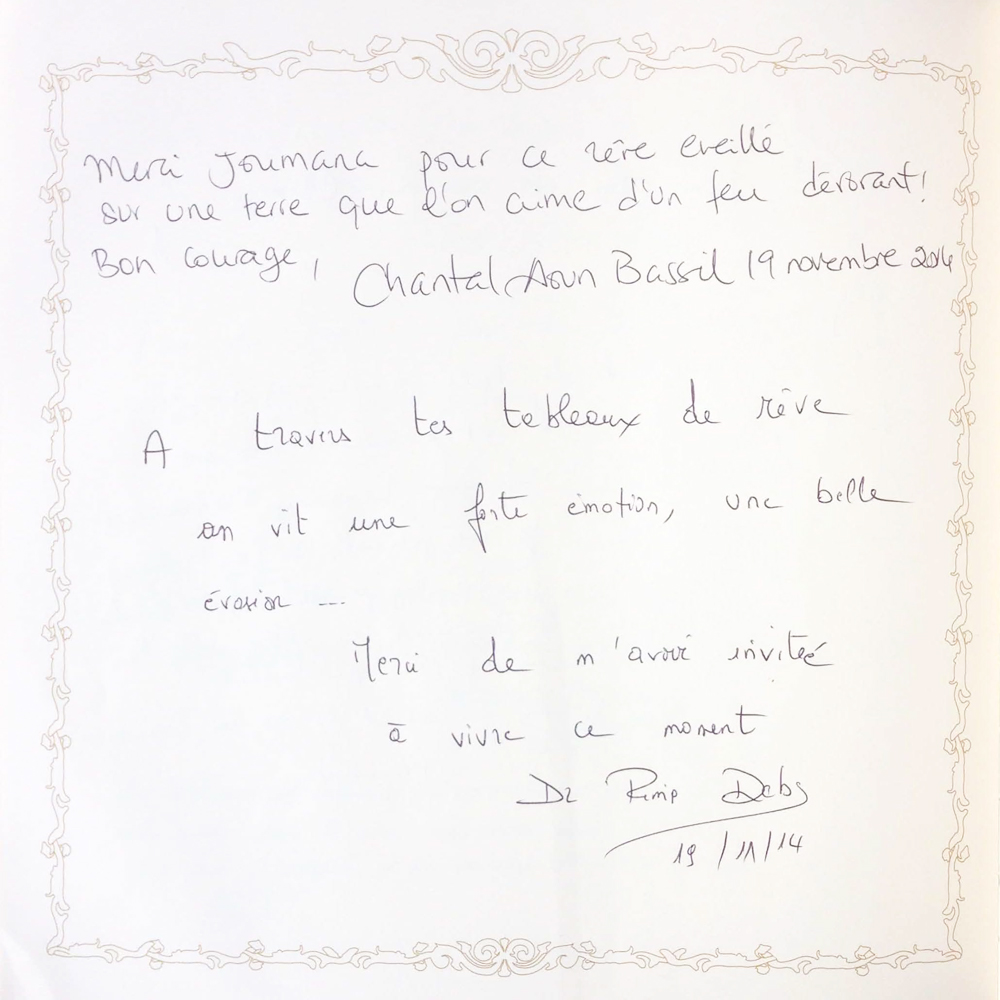 Merci Joumana pour ce rêve eveillé
sur une terre que l'on aime d'un feu dévorant!
Bon courage, Chantal Aoun Bassil 19 novembre 2014
A travers tes tableaux de rêve
on vit une forte émotion, une belle
évasion ...
Merci de m'avoir invitée
à vivre ce moment
Dr Debs
19/11/14